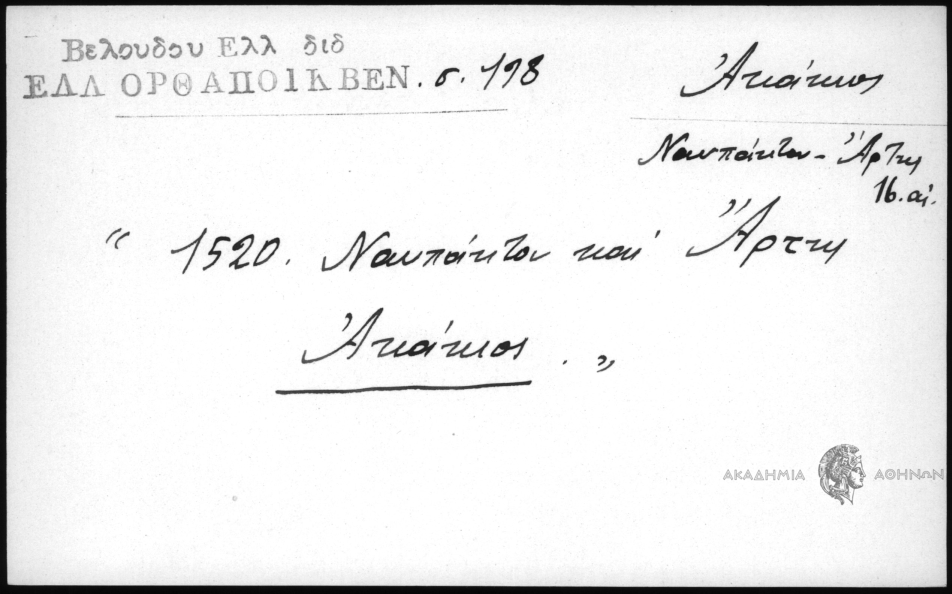 Βελουδου Ελλ διδ
ΕΛΛ ΟΡΘ ΑΠΟΙΚ ΒΕΝ. σ. 198
Ἀκάκιος
Ναυπάκτου - Ἄρτης
16. αἰ.
“ 1520. Ναυπάκτου καὶ Ἄρτης
Ἀκάκιος . „
ΑΚΑΔΗΜΙΑ ΑΘΗΝΩΝ